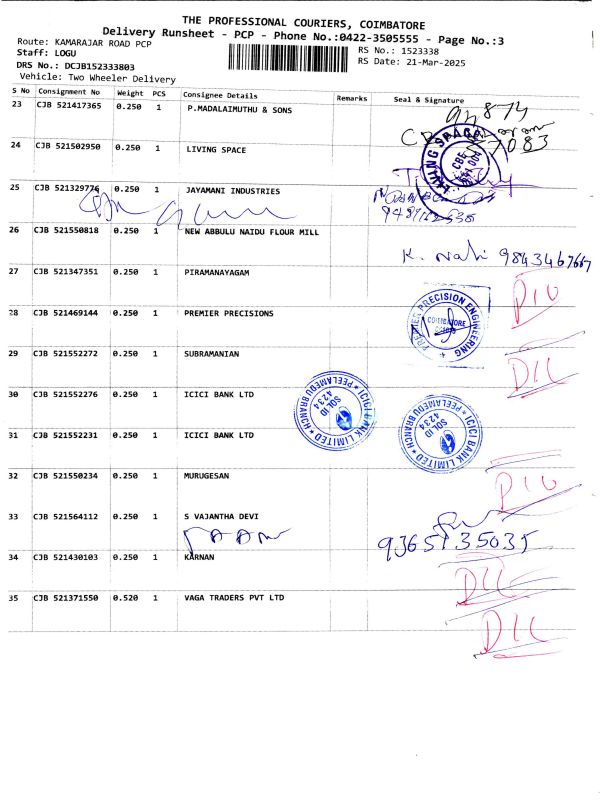 THE PROFESSIONAL COURIERS, COIMBATORE
Delivery Runsheet - PCP - Phone No.:0422-3505555 - Page No.:3
Route: KAMARAJAR ROAD PCP
Staff: LOGU
RS No.: 1523338
DRS No.: DCJB152333803
RS Date: 21-Mar-2025
Vehicle: Two Wheeler Delivery
S No Consignment No Weight PCS Consignee Details Remarks Seal & Signature
23 CJB 521417365 0.250 1 P.MADALAIMUTHU & SONS
24 CJB 521502950 0.250 1 LIVING SPACE
LIVING SPACE
CBE
25 CJB 521329776 0.250 1 JAYAMANI INDUSTRIES
26 CJB 521550818 0.250 1 NEW ABBULU NAIDU FLOUR MILL
27 CJB 521347351 0.250 1 PIRAMANAYAGAM
28 CJB 521469144 0.250 1 PREMIER PRECISIONS
PREMIER PRECISION ENGINEERING
COIMBATORE
29 CJB 521552272 0.250 1 SUBRAMANIAN
30 CJB 521552276 0.250 1 ICICI BANK LTD
ICICI BANK LIMITED
PEELAMEDU BRANCH
SOL ID
4234
31 CJB 521552231 0.250 1 ICICI BANK LTD
ICICI BANK LIMITED
PEELAMEDU BRANCH
SOL ID
4234
32 CJB 521550234 0.250 1 MURUGESAN
33 CJB 521564112 0.250 1 S VAJANTHA DEVI
9365135035
34 CJB 521430103 0.250 1 KARNAN
35 CJB 521371550 0.520 1 VAGA TRADERS PVT LTD